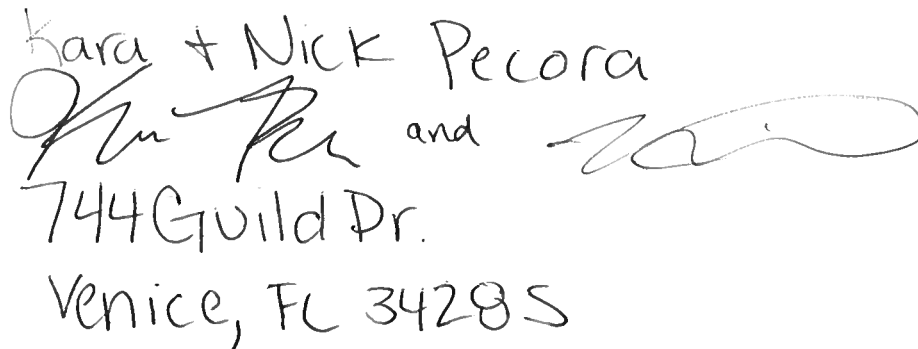 Kara + Nick Pecora
and
744 Guild Dr.
Venice, FL 34285